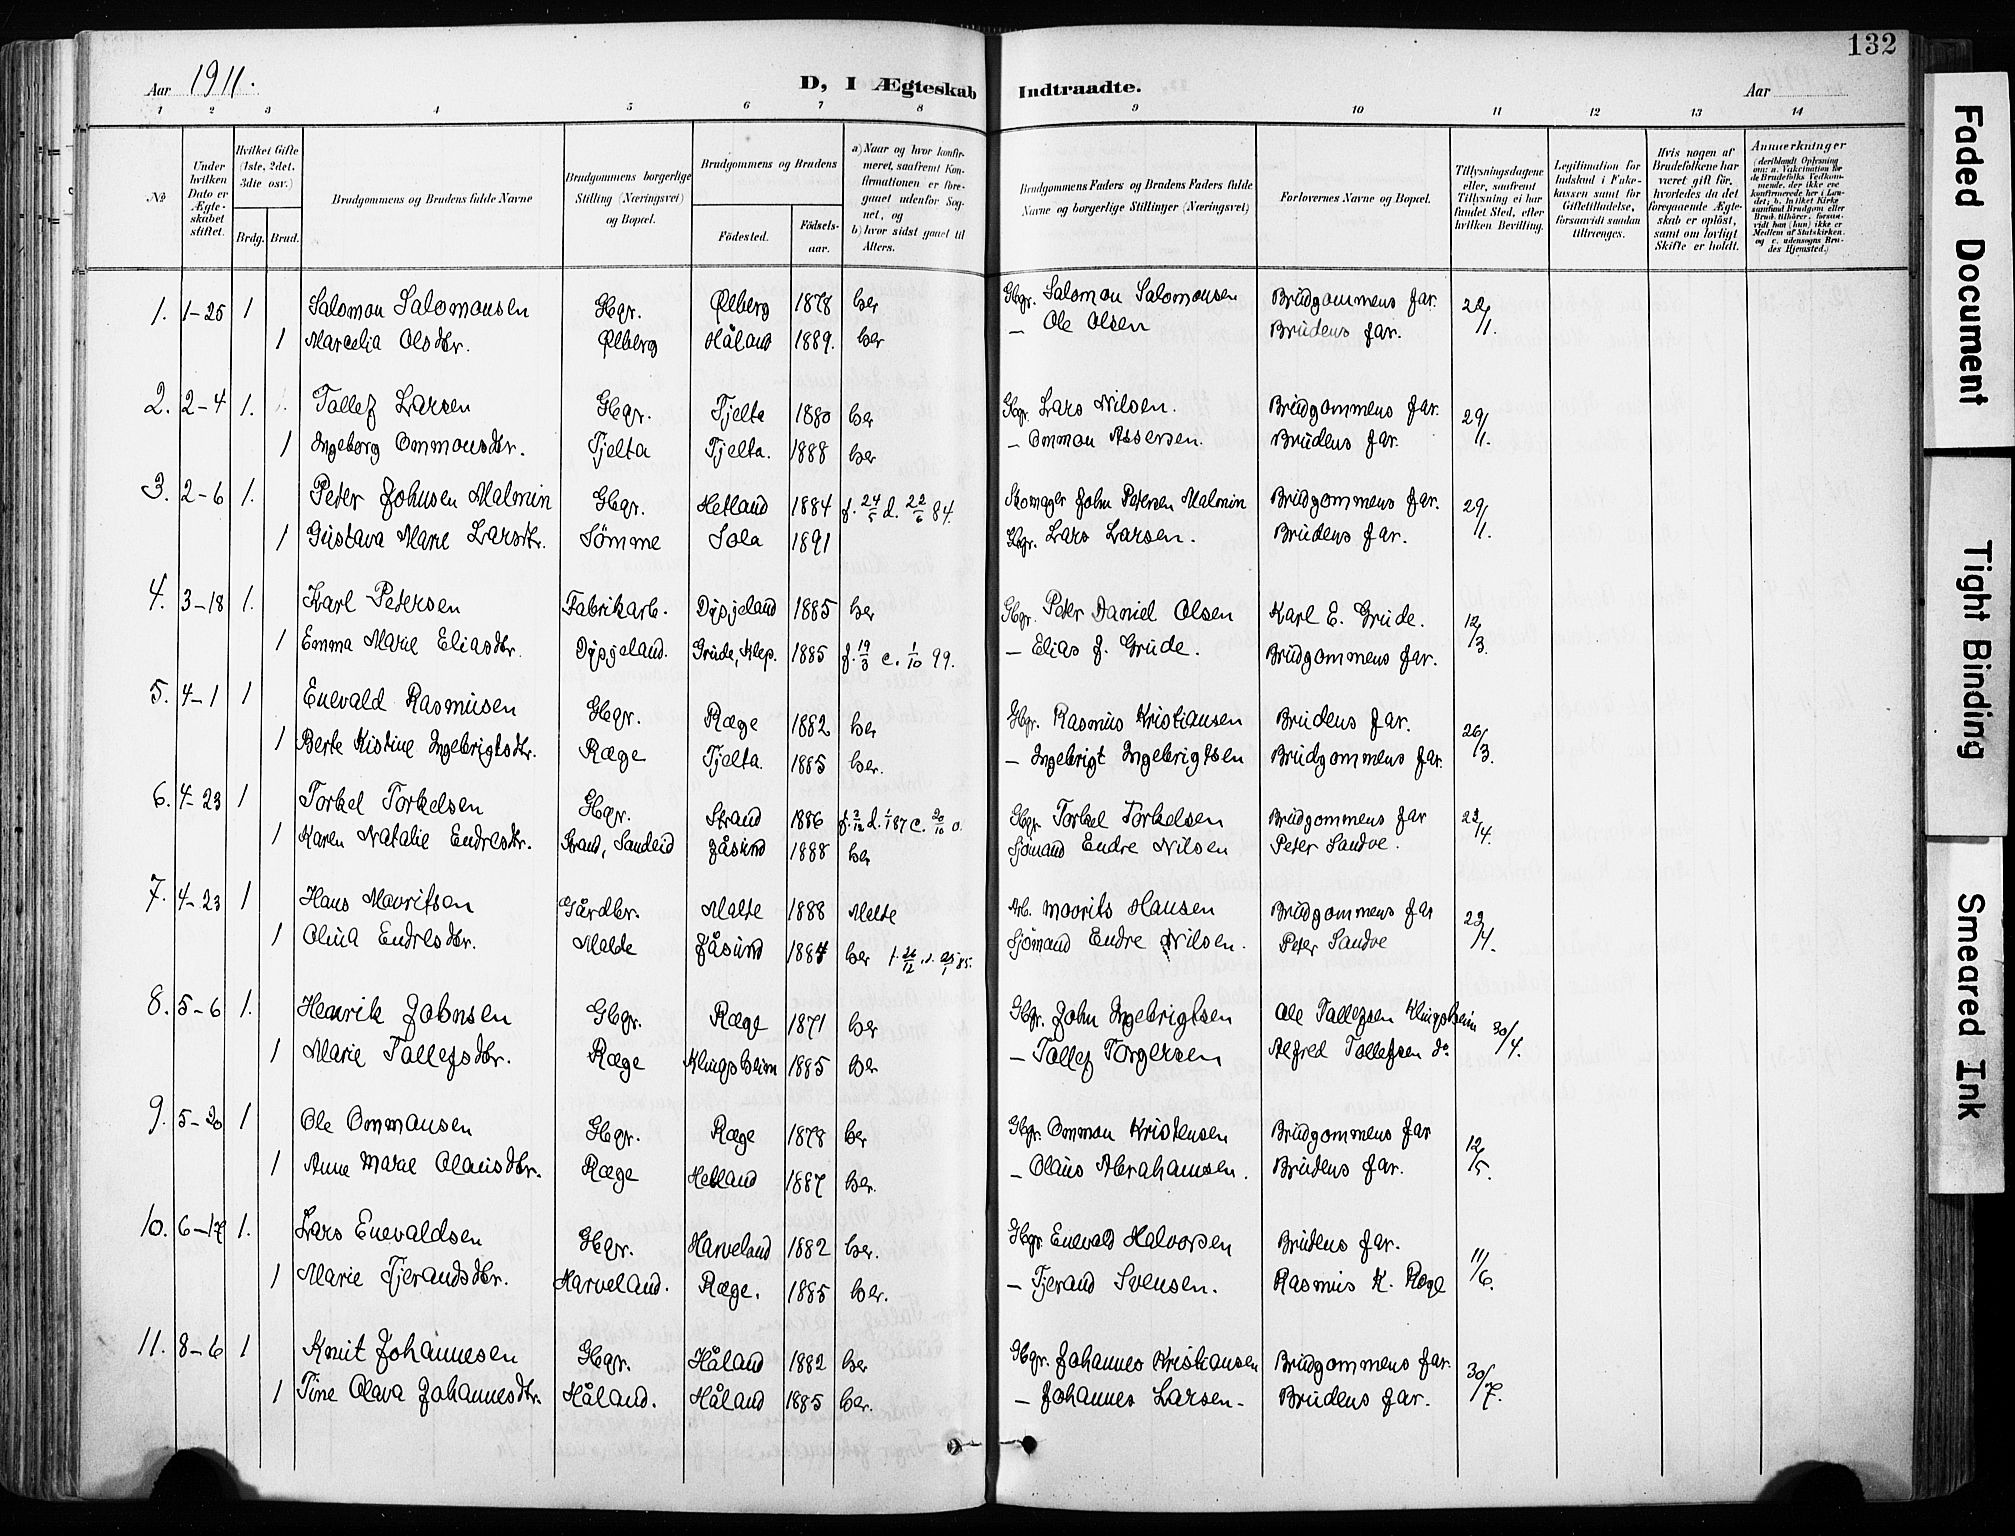 132
Aar 1911.
D, I Ægteskab Indtraadte.
Aar
1 2 3 4 5 6 7 8 9 10 11 12 13 14
No
Under hvilken Dato er Ægteskabet stiftet.
Hvilket Gifte (1ste, 2det, 3die osv.)
Brdg. Brud.
Brudgommens og Brudens fulde Navne
Brudgommens borgerlige Stilling (Næringsvei) og Bopæl.
Brudgommens og Brudens
Fødested. Fødselsaar.
a) Naar og hvor konfirmeret, saafremt Konfirmationen er foregaaet udenfor Sognet, og
b) hvor sidst gaaet til Alters.
Brudgommens Faders og Brudens Faders fulde Navne og borgerlige Stillinger (Næringsvei)
Forlovernes Navne og Bopæl.
Tillysningsdagene eller, saafremt Tillysning ei har fundet Sted, efter hvilken Bevilling.
Legitimation for Indskud i Enkekassen samt for Giftetilladelse, forsaavidt saadan tiltrænges.
Hvis nogen af Brudefolkene har været gift før, hvorledes da det foregaaende Ægteskab er opløst, samt om lovligt Skifte er holdt.
Anmerkninger
(deriblandt Oplysning om: a. Vakcination for de Brudefolks Vedkommende, der ikke ere konfirmerede her i Landet; b. hvilket Kirkesamfund Brudgom eller Brud tilhører, forsaavidt han (hun) ikke er Medlem af Statskirken, og c. udensogns Brudes Hjemsted.)
1. 1-25 1 Salomon Salomonsen Gbgr. Ølberg 1878 her Gbgr. Salomon Salomonsen Brudgommens far. 22/1.
1 Marcelia Olsdtr. Ølberg Håland 1889. her — Ole Olsen Brudens far.
2. 2-4 1. Tallef Larsen Gbgr. Tjelta 1880 her Gbgr. Lars Nilsen. Brudgommens far. 29/1.
1 Ingeborg Ommonsdtr. Tjelta Tjelta. 1888 her — Ommon Assersen. Brudens far.
3. 2-6 1. Peter Johnsen Malmin Gbgr. Hetland 1884 f. 24/5 d. 22/6 84. Skomager John Petersen Malmin Brudgommens far. 29/1.
1 Gustava Marie Larsdtr. Sömme Sola 1891 Gbgr. Lars Larsen. Brudens far.
4. 3-18 1. Karl Petersen Fabrikarb. Dysjeland 1885 her Gbgr. Peter Daniel Olsen Karl E. Grude. 12/3.
1 Emma Marie Eliasdtr. Dysjeland. Grude, Klep. 1885 f. 19/3 c. 1/10 99. — Elias J. Grude. Brudgommens far.
5. 4-1 1 Enevald Rasmusen Gbgr. Ræge 1882 her Gbgr. Rasmus Kristiansen Brudens far. 26/3.
1 Berte Kistine Ingebrigtsdtr. Ræge Tjelta. 1885 her. — Ingebrigt Ingebrigtsen Brudgommens far.
6. 4-23 1 Torkel Torkelsen Gbgr. Strand 1886 Gbgr. Torkel Torkelsen Brudgommens far 23/4.
1 Karen Natalie Endresdtr. Strand, Sandeid Jåsund 1888 her Sjömand Endre Nilsen Peter Sandve.
7. 4-23 1 Hans Mauritsen Gårdbr. Malte 1888 Malte Arb. Maurits Hansen Brudgommens far 23/4.
1 Olina Endresdtr. Malde Jåsund 1884 her f. 26/12 d. 25/1 85. Sjömand Endre Nilsen. Peter Sandve
8. 5-6 1. Henrik Johnsen Gbgr. Ræge 1871 her Gbgr. John Ingebrigtsen Ole Tallefsen Klingsheim 30/4.
1 Marie Tallefsdtr. Ræge Klingsheim 1885 her — Tallef Torgersen Alfred Tallefsen do
9. 5-20 1 Ole Ommonsen Gbgr. Ræge 1878 her Gbgr. Ommon Kristensen Brudgommens far 12/5.
1 Anne Marie Olausdtr. Ræge Hetland 1887 her. — Olaus Abrahamsen. Brudens far.
10. 6-17 1. Lars Enevaldsen Gbgr. Harveland 1882 her. Gbgr. Enevald Halvorsen Brudens far. 11/6.
1 Marie Tjerandsdtr. Harveland. Ræge. 1885 her. — Tjerand Svensen. Rasmus K. Ræge
11. 8-6 1 Knut Johannesen Gbgr. Håland 1882 her Gbgr. Johannes Kristiansen Brudgommens far. 30/7.
1 Tine Olava Johannesdtr. Håland. Håland 1885 her. — Johannes Larsen. Brudens far.
Faded Document
Tight Binding
Smeared Ink